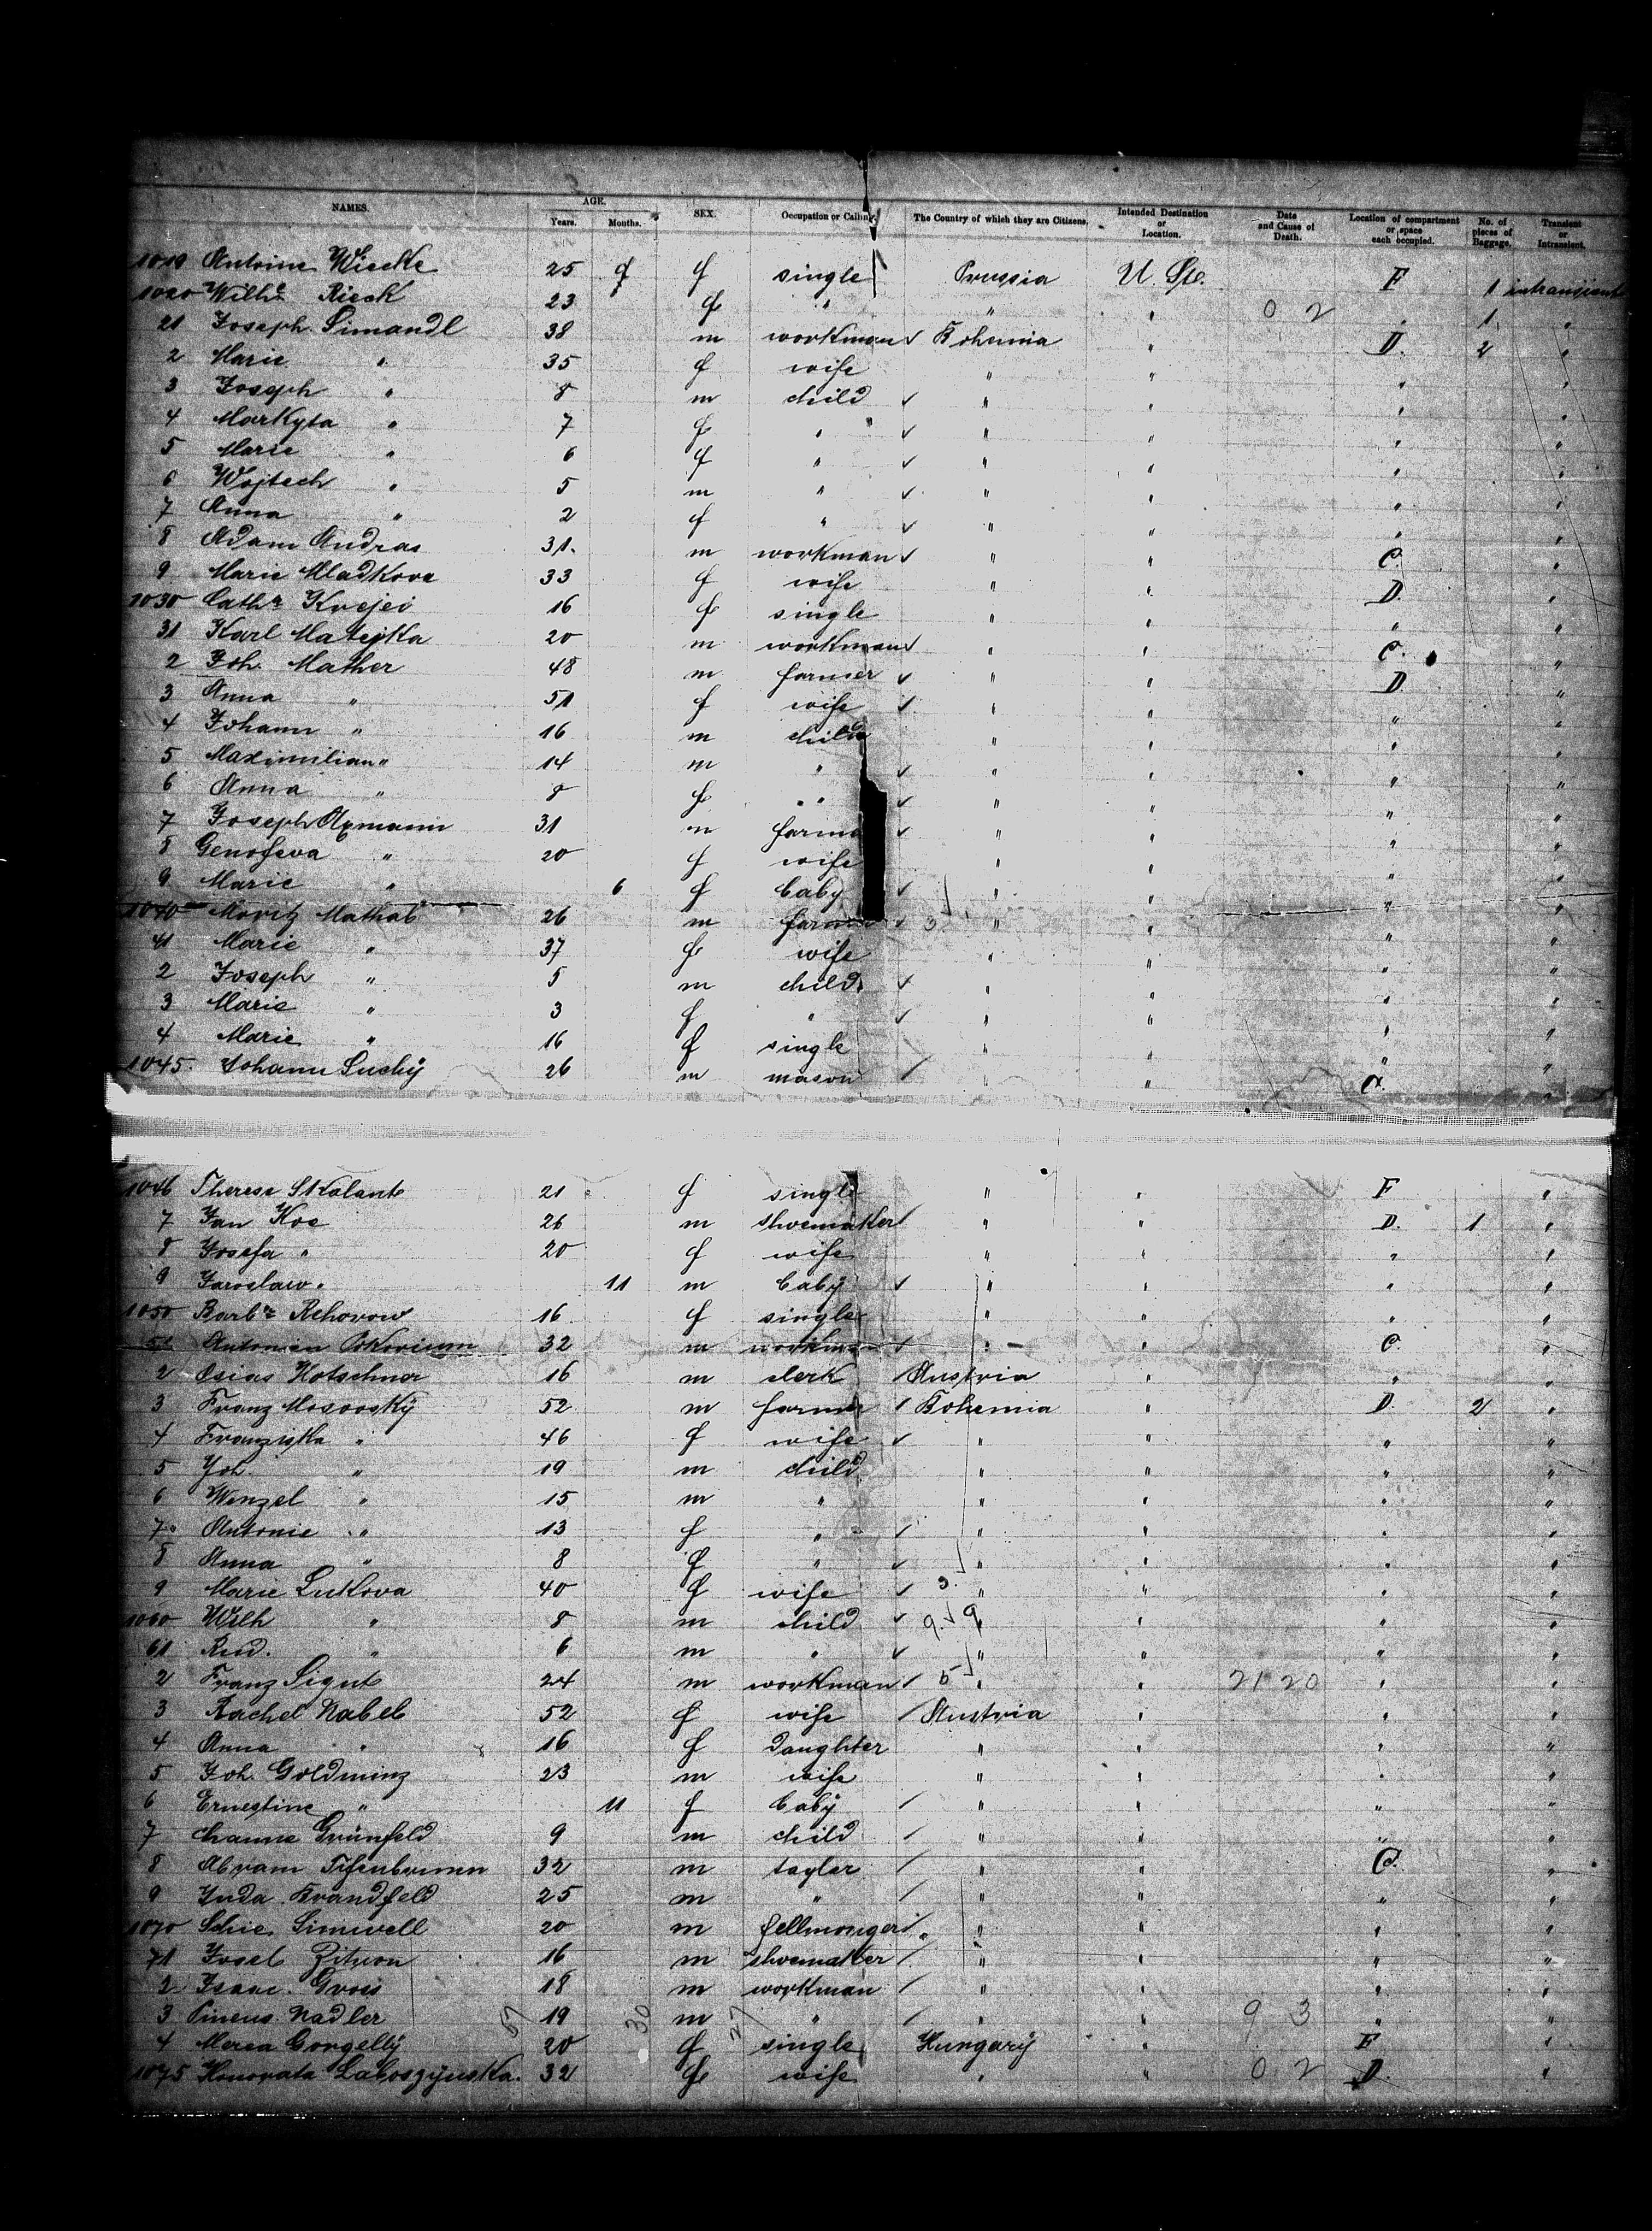 NAMES. AGE. Years. Months. SEX. Occupation or Calling. The Country of which they are Citizens. Intended Destination or Location. Date and Cause of Death. Location of compartment or space each occupied. No. of pieces of Baggage. Transient or Intransient.
1019 Antoine Wiecke 25 f single Prussia U. St. F 1 intransient
1020 Wilhe Rieck 23 f " " " 0 2 " 1 "
21 Joseph Simandl 38 m workman Bohemia " D. 2 "
2 Marie " 35 f wife " " " "
3 Joseph " 8 m child " " " "
4 Markyta " 7 f " " " " "
5 Marie " 6 f " " " " "
6 Wojtech " 5 m " " " " "
7 Anna " 2 f " " " " "
8 Adam Andras 31. m workman " " C. "
9 Marie Mladkova 33 f wife " " D. "
1030 Cath. Krejci 16 f single " " " "
31 Karl Matejka 20 m workman " " C. "
2 Joh. Mather 48 m farmer " " D. "
3 Anna " 51 f wife " " " "
4 Johann " 16 m child " " " "
5 Maximilian " 14 m " " " " "
6 Anna " 8 f " " " " "
7 Joseph Axmann 31 m farme " " " "
8 Genofeva " 20 f wife " " " "
9 Marie " 6 f baby " " " "
1040 Moritz Mathab 26 m farmer 3 " " " "
41 Marie " 37 f wife " " " "
2 Joseph " 5 m child " " " "
3 Marie " 3 f " " " " "
4 Marie " 16 f single " " " "
1045. Johann Suchy 26 m mason " " C. "
1046 Therese Skalant 21 f single " " F "
7 Jan Koc 26 m shoemaker " " D. 1 "
8 Josefa " 20 f wife " " " "
9 Jaroslaw " 11 m baby " " " "
1050 Barb. Rehorow 16 f single " " " "
51 Antonin 32 m workman " " C. "
2 Osias Kotschner 16 m clerk Austria " " "
3 Franz Mosovsky 52 m farmer Bohemia " D. 2 "
4 Franziska " 46 f wife " " " "
5 Joh. " 19 m child " " " "
6 Wenzel " 15 m " " " " "
7 Antonie " 13 f " " " " "
8 Anna " 8 f " " " " "
9 Marie Lukova 40 f wife 3. " " " "
1060 Wilh " 8 m child 9. 9 " " "
61 Rud. " 6 m " " " " "
2 Franz Sigut 24 m workman 5 " " 21 20 " "
3 Rachel Nabel 52 f wife Austria " " "
4 Anna " 16 f Daughter " " " "
5 Joh. Goldminz 23 m wife " " " "
6 Ernestine " 11 f baby " " " "
7 Channe Grünfeld 9 m child " " " "
8 Abram Tifenbrunn 32 m taylor " " C. "
9 Juda Brandfeld 25 m " " " " "
1070 Schie Simwell 20 m fellmonger " " " "
71 Josel Zitron 16 m shoemaker " " " "
2 Isaac Gross 18 m workman " " " "
3 Pineus Nadler 57 19 30 m 27 " " " 9 3 " "
4 Merea Gorgelly 20 f single Hungary " F "
1075 Honorata Laboszynska. 32 f wife " " 0 2 D. "